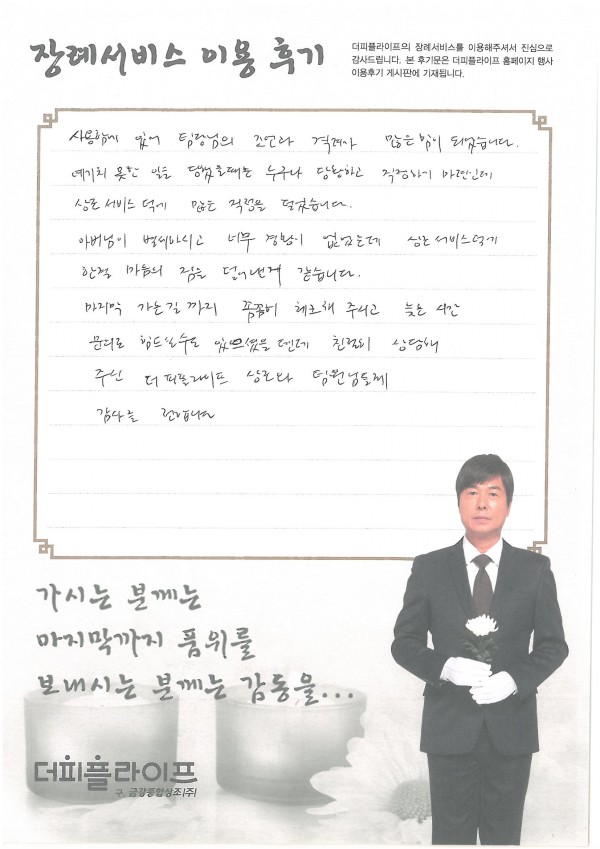 장례서비스 이용 후기
더피플라이프의 장례서비스를 이용해주셔서 진심으로
감사드립니다. 본 후기문은 더피플라이프 홈페이지 행사
이용후기 게시판에 기재됩니다.
있어 팀장님의 조언과 격려가 많은 힘이 되었습니다.
예기치 못한 일을 당했을때는 누구나 당황하고 걱정하기 마련인데
상조 서비스 덕에 많은 걱정을 덜었습니다.
아버님이 별세하시고 너무 경황이 없었는데 상조 서비스덕에
한결 마음의 짐을 덜어낸게 같습니다.
마지막 가는길 까지 꼼꼼히 체크해 주시고 늦은 시간
문의로 힘드실수도 있으셨을 텐데 친절히 상담해
주신 더피플라이프 상조와 팀원님들께
감사를 전합니다
가시는 분께는
마지막까지 품위를
보내시는 분께는 감동을...
더피플라이프
구. 금강종합상조(주)